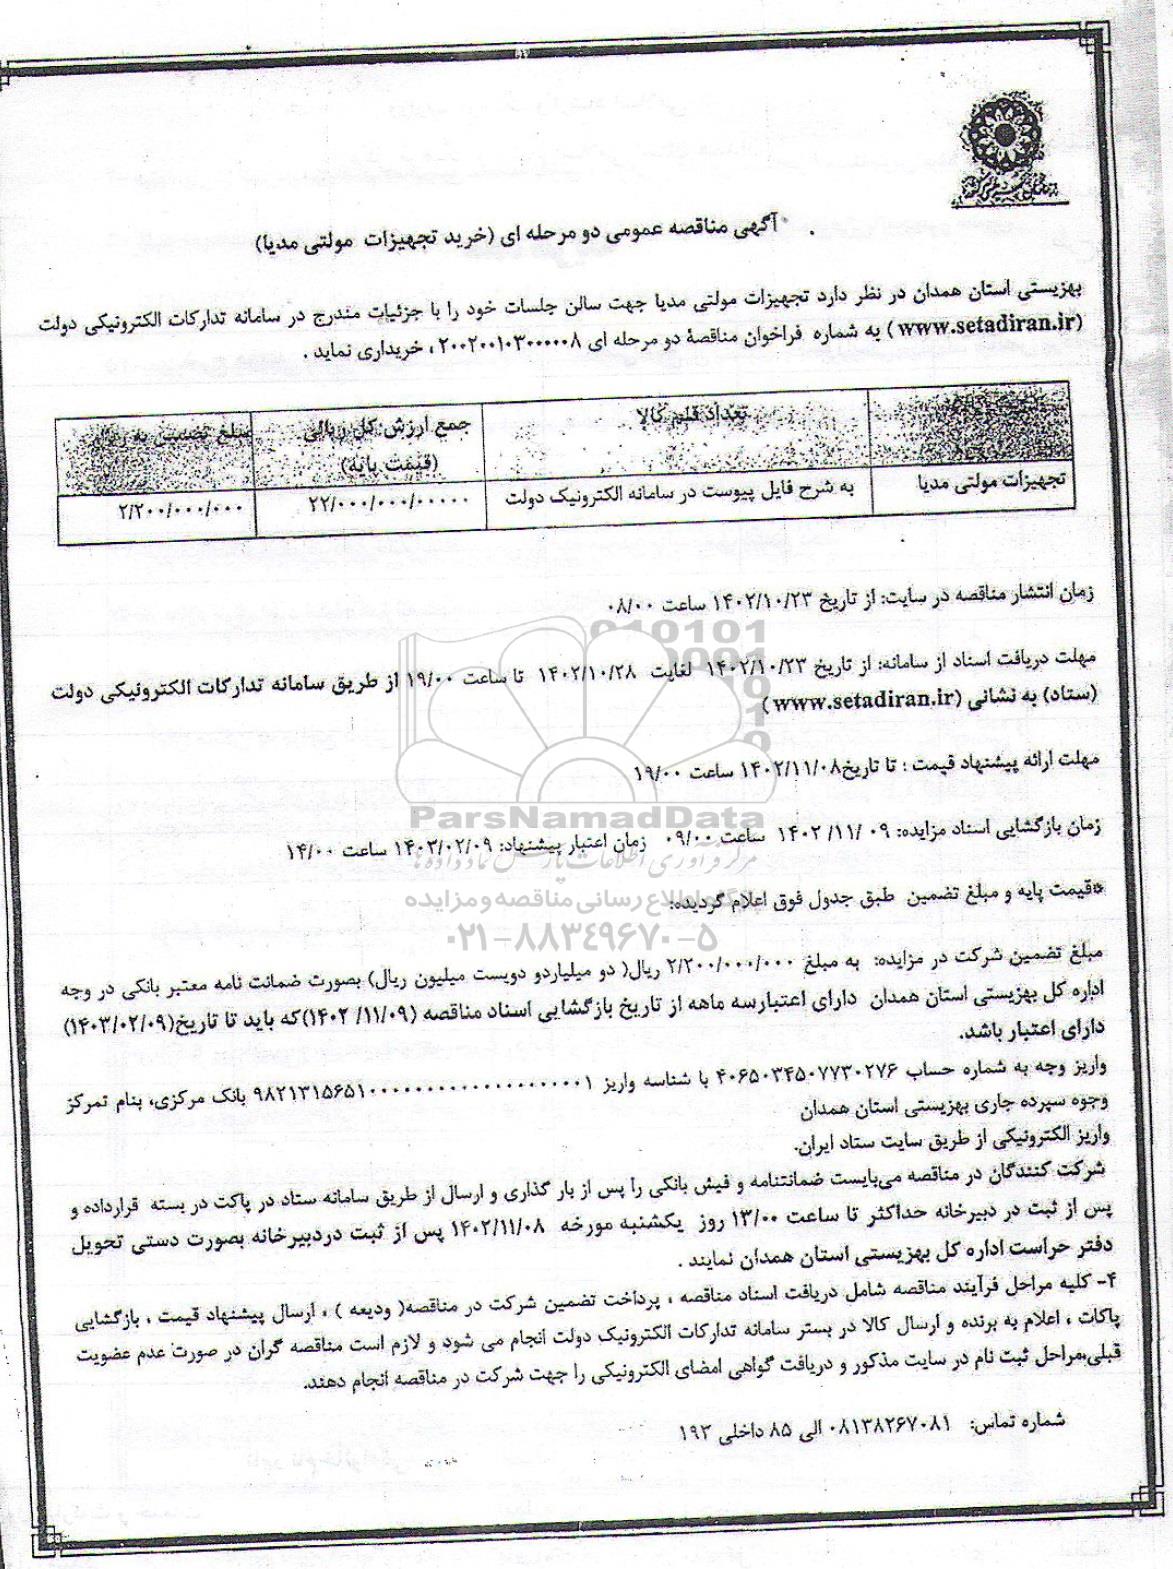 آگهی مناقصه عمومی دو مرحله ای (خرید تجهیزات مولتی مدیا)
بهزیستی استان همدان در نظر دارد تجهیزات مولتی مدیا جهت سالن جلسات خود را با جزئیات مندرج در سامانه تدارکات الکترونیکی دولت
(www.setadiran.ir) به شماره فراخوان مناقصهٔ دو مرحله ای ۲۰۰۲۰۰۱۰۳۰۰۰۰۰۸ ، خریداری نماید .
تعداد قلم کالا
جمع ارزش کل ریالی
(قیمت پایه)
مبلغ تضمین به ریال
تجهیزات مولتی مدیا
به شرح فایل پیوست در سامانه الکترونیک دولت
۲۲/۰۰۰/۰۰۰/۰۰۰۰۰
۲/۲۰۰/۰۰۰/۰۰۰
زمان انتشار مناقصه در سایت: از تاریخ ۱۴۰۲/۱۰/۲۳ ساعت ۰۸/۰۰
مهلت دریافت اسناد از سامانه: از تاریخ ۱۴۰۲/۱۰/۲۳ لغایت ۱۴۰۲/۱۰/۲۸ تا ساعت ۱۹/۰۰ از طریق سامانه تدارکات الکترونیکی دولت
(ستاد) به نشانی (www.setadiran.ir)
مهلت ارائه پیشنهاد قیمت : تا تاریخ۱۴۰۲/۱۱/۰۸ ساعت ۱۹/۰۰
زمان بازگشایی اسناد مزایده: ۰۹ /۱۱/ ۱۴۰۲ ساعت ۰۹/۰۰ زمان اعتبار پیشنهاد: ۱۴۰۳/۰۲/۰۹ ساعت ۱۴/۰۰
ParsNamadData
مرکز فرآوری اطلاعات پارس نماد داده ها
*قیمت پایه و مبلغ تضمین طبق جدول فوق اعلام گردیده:
پایگاه اطلاع رسانی مناقصه و مزایده
۰۲۱-۸۸۳۴۹۶۷۰-۵
مبلغ تضمین شرکت در مزایده: به مبلغ ۲/۲۰۰/۰۰۰/۰۰۰ ریال( دو میلیاردو دویست میلیون ریال) بصورت ضمانت نامه معتبر بانکی در وجه
اداره کل بهزیستی استان همدان دارای اعتبارسه ماهه از تاریخ بازگشایی اسناد مناقصه (۱۱/۰۹/ ۱۴۰۲)که باید تا تاریخ(۱۴۰۳/۰۲/۰۹)
دارای اعتبار باشد.
واریز وجه به شماره حساب ۴۰۶۵۰۳۴۵۰۷۷۳۰۲۷۶ با شناسه واریز بانک مرکزی، بنام تمرکز
وجوه سپرده جاری بهزیستی استان همدان
واریز الکترونیکی از طریق سایت ستاد ایران.
شرکت کنندگان در مناقصه می‌بایست ضمانتنامه و فیش بانکی را پس از بار گذاری و ارسال از طریق سامانه ستاد در پاکت در بسته قرارداده و
پس از ثبت در دبیرخانه حداکثر تا ساعت ۱۳/۰۰ روز یکشنبه مورخه ۱۴۰۲/۱۱/۰۸ پس از ثبت دردبیرخانه بصورت دستی تحویل
دفتر حراست اداره کل بهزیستی استان همدان نمایند .
۴- کلیه مراحل فرآیند مناقصه شامل دریافت اسناد مناقصه ، پرداخت تضمین شرکت در مناقصه( ودیعه ) ، ارسال پیشنهاد قیمت ، بازگشایی
پاکات ، اعلام به برنده و ارسال کالا در بستر سامانه تدارکات الکترونیک دولت انجام می شود و لازم است مناقصه گران در صورت عدم عضویت
قبلی،مراحل ثبت نام در سایت مذکور و دریافت گواهی امضای الکترونیکی را جهت شرکت در مناقصه انجام دهند.
شماره تماس: ۰۸۱۳۸۲۶۷۰۸۱ الی ۸۵ داخلی ۱۹۳